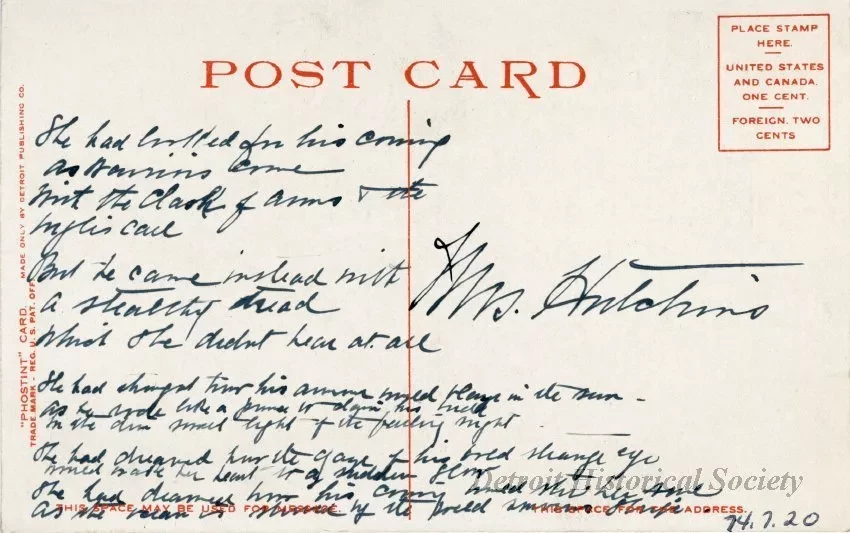 POST CARD
PLACE STAMP
HERE.
UNITED STATES
AND CANADA.
ONE CENT.
FOREIGN. TWO
CENTS
"PHOSTINT" CARD. MADE ONLY BY DETROIT PUBLISHING CO.
TRADE MARK - REG. U.S. PAT. OFF.
She had looked for his coming
as warriors come
With the clash of arms & the
bugles call
But he came instead with
a stealthy tread
Which she didnt hear at all
She had thought how his armour would blaze in the sun -
As he rode like a prince to claim his bride
In the dim sweet light of the falling night
She had dreamed how the gaze of his bold strange eye
would wake her heart to a sudden glow
She had dreamed how his coming would stir her soul
As the ocean is stirred by the wild storms strife
Mrs. Hutchins
THIS SPACE MAY BE USED FOR MESSAGE.
THIS SPACE FOR ADDRESS.
Detroit Historical Society
74.7.20